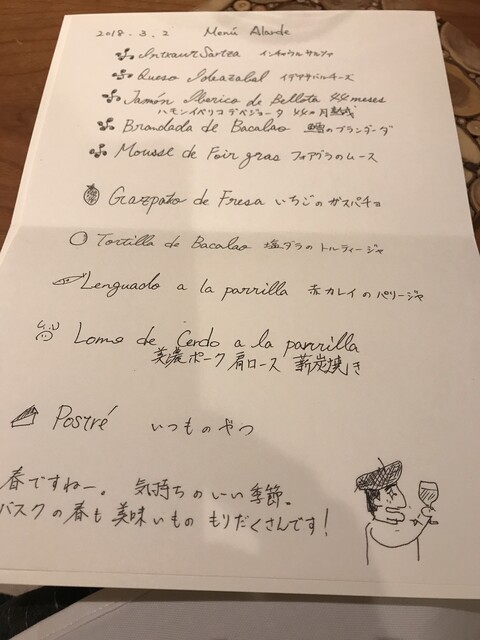 2018.3.2 Menú Alarde
Intxaur Saltza インチャウルサルツァ
Queso Ideazabal イデアサバルチーズ
Jamón Iberico de Bellota 44 meses
ハモンイベリコデベジョータ 44ヶ月熟成
Brandada de Bacalao 鱈のブランダーダ
Mousse de Foir gras フォアグラのムース
Gazpacho de Fresa いちごのガスパチョ
Tortilla de Bacalao 塩ダラのトルティージャ
Lenguado a la parrilla 赤カレイのパリージャ
Lomo de Cerdo a la parrilla
美濃ポーク 肩ロース 薪炭焼き
Postré いつものやつ
春ですねー。 気持ちのいい季節。
バスクの春も美味いもの もりだくさんです!